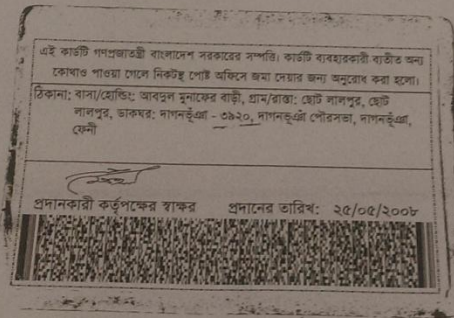 এই কার্ডটি গণপ্রজাতন্ত্রী বাংলাদেশ সরকারের সম্পত্তি। কার্ডটি ব্যবহারকারী ব্যতীত অন্য
কোথাও পাওয়া গেলে নিকটস্থ পোষ্ট অফিসে জমা দেয়ার জন্য অনুরোধ করা হলো।
ঠিকানা: বাসা/হোল্ডিং: আবদুল মুনাফের বাড়ী, গ্রাম/রাস্তা: ছোট লালপুর, ছোট
লালপুর, ডাকঘর: দাগনভূঁঞা - ৩৯২০, দাগনভূঁঞা পৌরসভা, দাগনভূঁঞা,
ফেনী
প্রদানকারী কর্তৃপক্ষের স্বাক্ষর প্রদানের তারিখ: ২৫/০৫/২০০৮